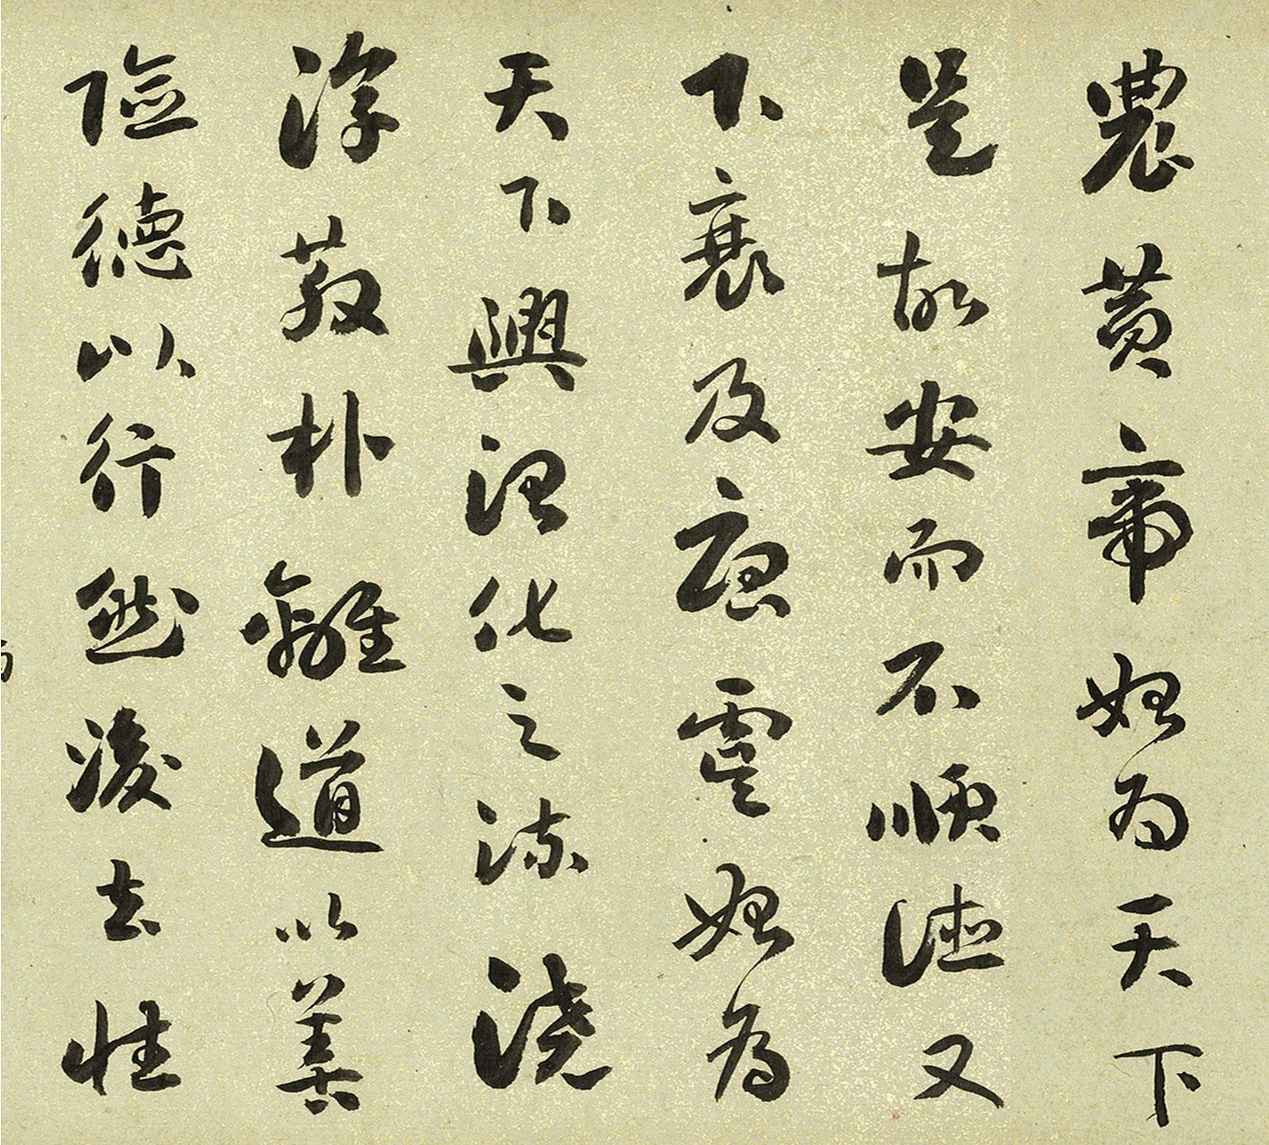 農黃帝始為天下
是故安而不順德又
下衰及唐虞始為
天下興治化之流澆
淳散朴離道以善
險德以行然後去性